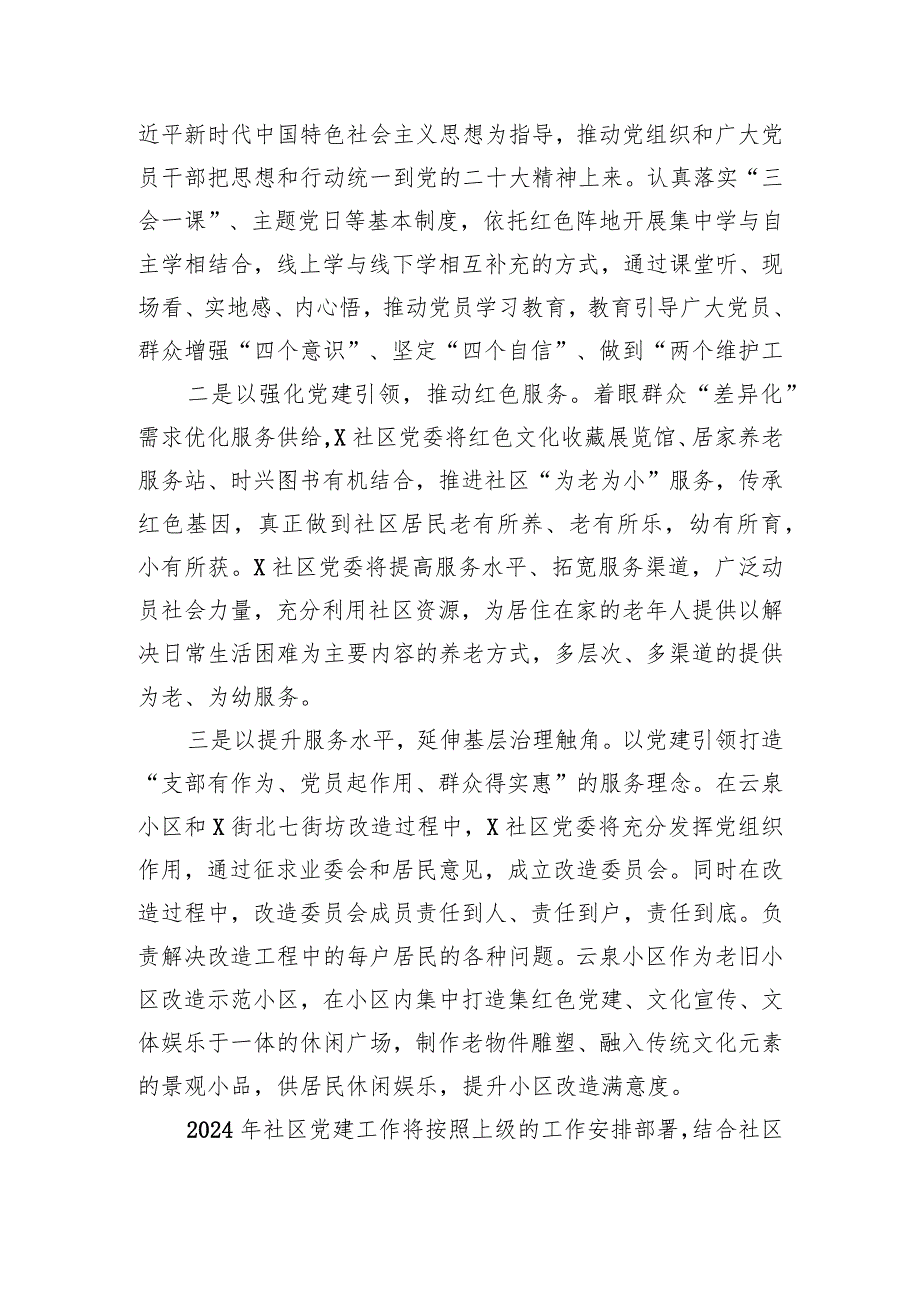 近平新时代中国特色社会主义思想为指导，推动党组织和广大党
员干部把思想和行动统一到党的二十大精神上来。认真落实“三
会一课”、主题党日等基本制度，依托红色阵地开展集中学与自
主学相结合，线上学与线下学相互补充的方式，通过课堂听、现
场看、实地感、内心悟，推动党员学习教育，教育引导广大党员、
群众增强“四个意识”、坚定“四个自信”、做到“两个维护工
二是以强化党建引领，推动红色服务。着眼群众“差异化”
需求优化服务供给,X 社区党委将红色文化收藏展览馆、居家养老
服务站、时兴图书有机结合，推进社区“为老为小”服务，传承
红色基因，真正做到社区居民老有所养、老有所乐，幼有所育，
小有所获。X 社区党委将提高服务水平、拓宽服务渠道，广泛动
员社会力量，充分利用社区资源，为居住在家的老年人提供以解
决日常生活困难为主要内容的养老方式，多层次、多渠道的提供
为老、为幼服务。
三是以提升服务水平，延伸基层治理触角。以党建引领打造
“支部有作为、党员起作用、群众得实惠”的服务理念。在云泉
小区和 X 街北七街坊改造过程中，X 社区党委将充分发挥党组织
作用，通过征求业委会和居民意见，成立改造委员会。同时在改
造过程中，改造委员会成员责任到人、责任到户，责任到底。负
责解决改造工程中的每户居民的各种问题。云泉小区作为老旧小
区改造示范小区，在小区内集中打造集红色党建、文化宣传、文
体娱乐于一体的休闲广场，制作老物件雕塑、融入传统文化元素
的景观小品，供居民休闲娱乐，提升小区改造满意度。
2024 年社区党建工作将按照上级的工作安排部署,结合社区